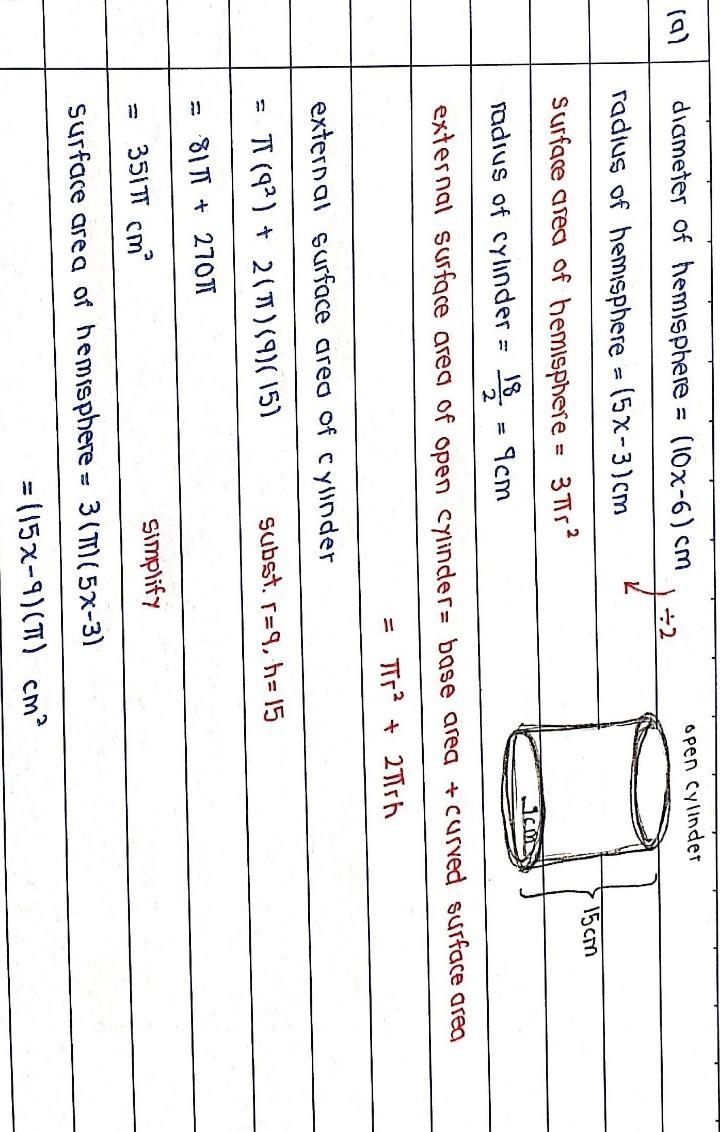 (a) diameter of hemisphere = (10x-6) cm
÷2
open cylinder
radius of hemisphere = (5x-3) cm
surface area of hemisphere = 3πr²
15cm
9cm
radius of cylinder = 18/2 = 9cm
external surface area of open cylinder = base area + curved surface area
= πr² + 2πrh
external surface area of cylinder
= π(9²) + 2(π)(9)(15) subst. r=9, h=15
= 81π + 270π
= 351π cm² simplify
surface area of hemisphere = 3(π)(5x-3)
= (15x-9)(π) cm²